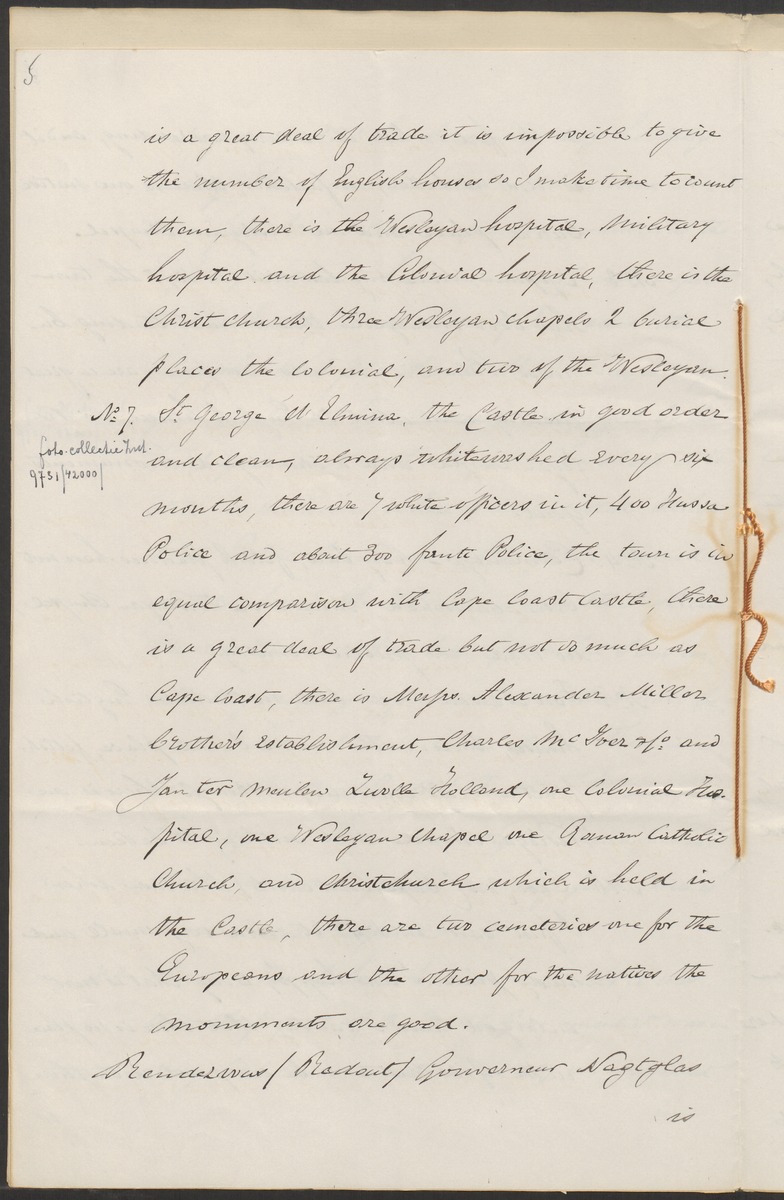 5
is a great deal of trade it is impossible to give
the number of English houses so I make time to count
them, there is the Wesleyan hospital, Military
hospital and the Colonial hospital, there is the
Christ church, three Wesleyan chapels 2 burial
places the Colonial, and two of the Wesleyan.
No. 7. St. George d'Elmina, the Castle in good order
foto-collectie Inst.
9731/42000/
and clean, always whitewashed every six
months, there are 7 white officers in it, 400 Hussa
Police and about 300 fante Police, the town is in
equal comparison with Cape Coast Castle, there
is a great deal of trade but not so much as
Cape Coast, there is Messrs. Alexander Miller
brother's establishment, Charles McIver & Co. and
Jan ter Meulen Zwolle Holland, one Colonial Hos-
pital, one Wesleyan Chapel one Roman Catholic
Church, and Christchurch which is held in
the Castle, there are two cemeteries one for the
Europeans and the other for the natives the
monuments are good.
Rendezvous / Redout / Gouverneur Nagtglas
is